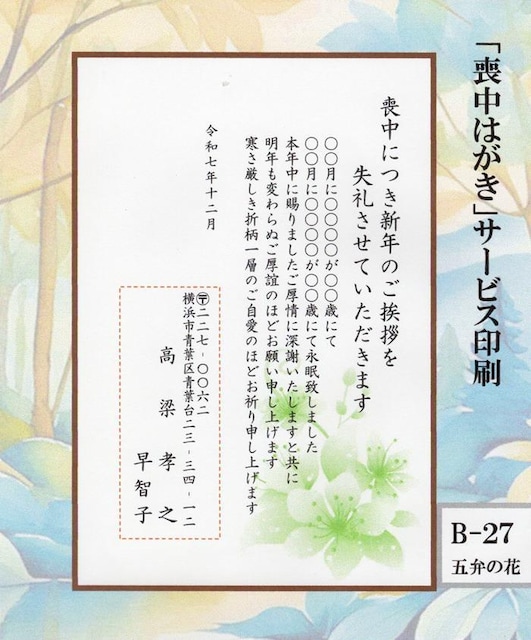 「喪中はがき」サービス印刷
喪中につき新年のご挨拶を
失礼させていただきます
〇〇月に〇〇〇〇が〇〇歳にて
〇〇月に〇〇〇〇が〇〇歳にて永眠致しました
本年中に賜りましたご厚情に深謝いたしますと共に
明年も変わらぬご厚誼のほどお願い申し上げます
寒さ厳しき折柄一層のご自愛のほどお祈り申し上げます
令和七年十二月
〒二二七-〇〇六二
横浜市青葉区青葉台二三-三四-一二
高梁孝之
早智子
B-27
五弁の花